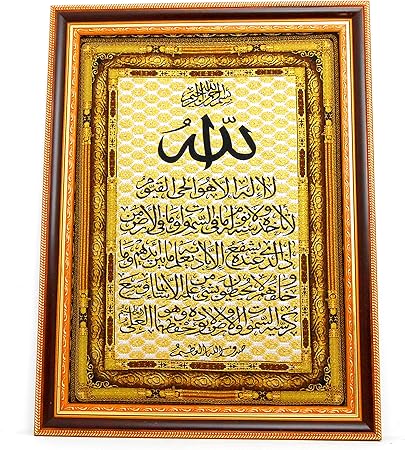 بسم الله الرحمن الرحيم
الله
لا إله إلا هو الحي القيوم
لا تأخذه سنة ولا نوم له ما في السموات وما في الأرض
من ذا الذي يشفع عنده إلا بإذنه يعلم ما بين أيديهم وما
خلفهم ولا يحيطون بشيء من علمه إلا بما شاء وسع
كرسيه السموات والأرض ولا يؤده حفظهما وهو العلي
العظيم